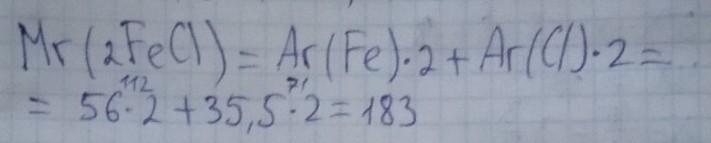 Mr(2FeCl) = Ar(Fe)·2 + Ar(Cl)·2 =
112 71
= 56·2 + 35,5·2 = 183